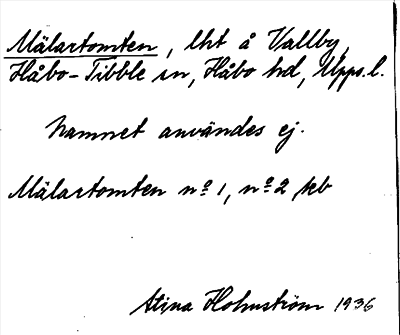 Mälartomten, lht å Vallby,
Håbo-Tibble sn, Håbo hd, Upps.l.
Namnet användes ej.
Mälartomten nº 1, nº 2 jeb
Stina Holmström 1936